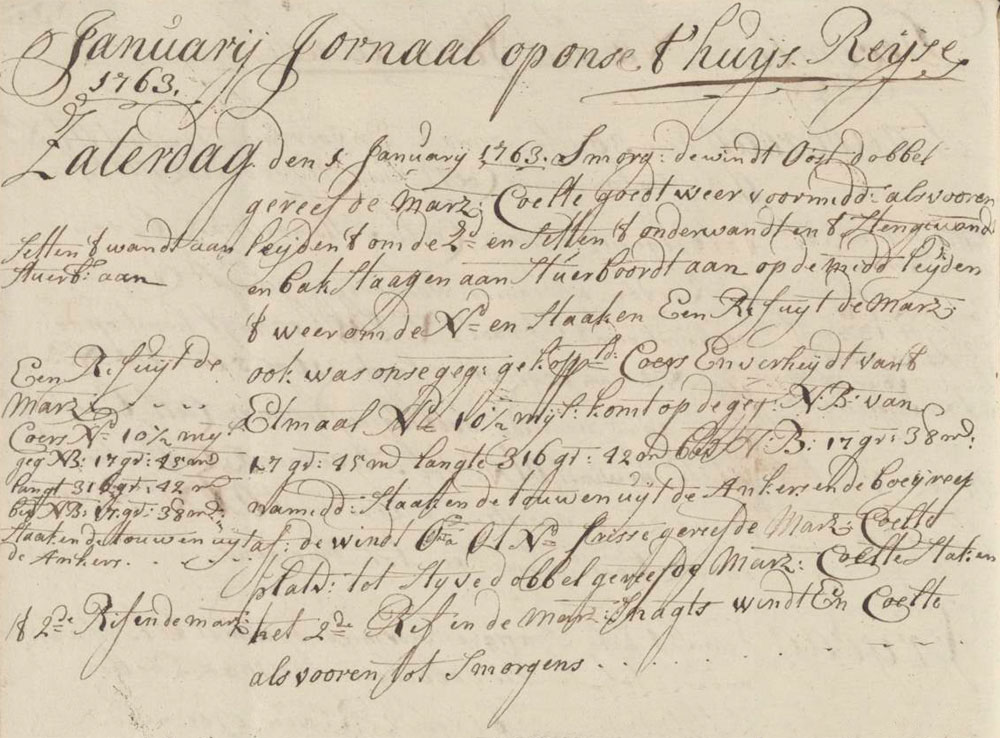 Januarij Jornaal op onse t'huijs Reijse
1763.
Zaterdag den 1 Januarij 1763. Smorg: de windt Oost dobbel
gereefde Marz: Coelte goedt weer voormidd: als vooren
Setten 't wandt aan
Stuerb: aan
leijden 't om de Zd en Setten 't onderwandt en 't Stengewand
en bakstaagen aan Stuerboordt aan op de midd leijden
't weer om de Nd en Staaken Een Rif uijt de Marz:
Een Rif uijt de
Marz: . . . .
ook was onse geg: gek: opp: Coers En verheijdt van 't
Etmaal Nd 10½ mijl: komt op de geg: N:B: van
Coers Nd 10½ mij:
geg NB: 17 gr: 45 md
langt 316 gr: 42 m
bev NB: 17 gr: 38 md:
17 gr: 45 md langte 316 gr: 42 md bev N:B: 17 gr: 38 md:
namidd: Staaken de touwen uijt de Ankers en de boeijreep
Staaken de touwen uijt
de Ankers. . .
af: de windt Ot Nd frisse gereefde Marz: Coelte
tot Stijve dobbel gereefde Marz: Coelte Staken
't 2de Rif en de marz:
het 2de Rif in de Marz: Snagts windt En Coelte
als vooren tot Smorgens . . . . . . . .